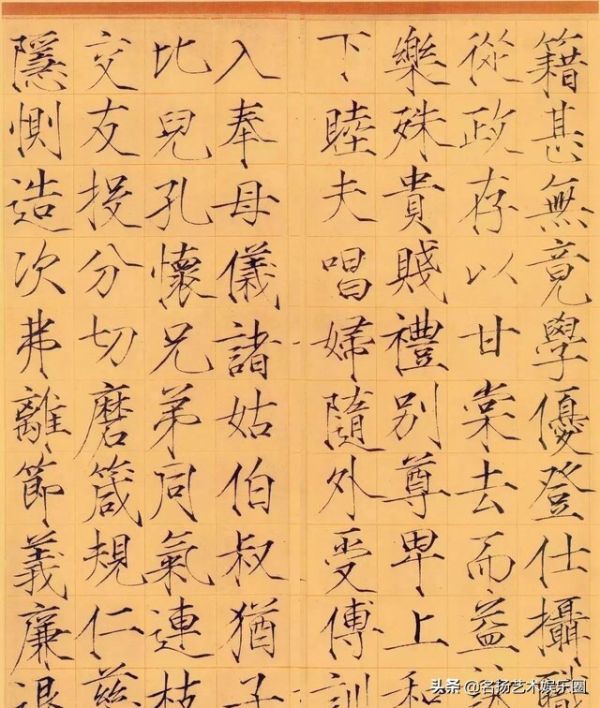 籍甚無竟學優登仕攝職
從政存以甘棠去而益詠
樂殊貴賤禮別尊卑上和
下睦夫唱婦隨外受傅訓
入奉母儀諸姑伯叔猶子
比兒孔懷兄弟同氣連枝
交友投分切磨箴規仁慈
隱惻造次弗離節義廉退
头条 @名扬艺术娱乐圈